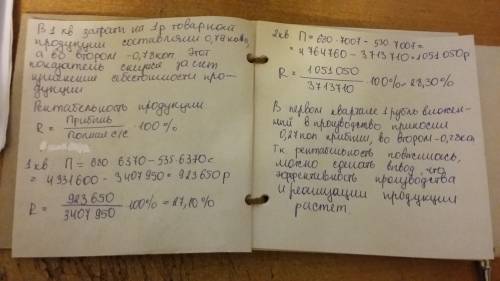 В 1 кв затраты на 1р товарной
продукции составляли 0,78 коп,
а во втором -0,78коп этот
показатель снизился за счет
снижения себестоимости про-
дукции
Рентабельность продукции
R = Прибыль / Полная с/с 100 %
1 кв П= 680 · 6370 - 535 · 6370 =
= 4331600 - 3407950 = 923650 р
R = 923650 / 3407950 · 100% = 27,10 %
2кв П = 680 · 7007 - 530 · 7007 =
= 4764760 - 3713710 = 1051050 р
R = 1051050 / 3713710 · 100% = 28,30 %
В первом квартале 1 рубль вложен-
ный в производство приносил
0,27 коп прибыли, во втором - 0,28 коп
Т.к. рентабельность повысилась,
можно сделать вывод, что
эффективность производства
и реализации продукции
растет